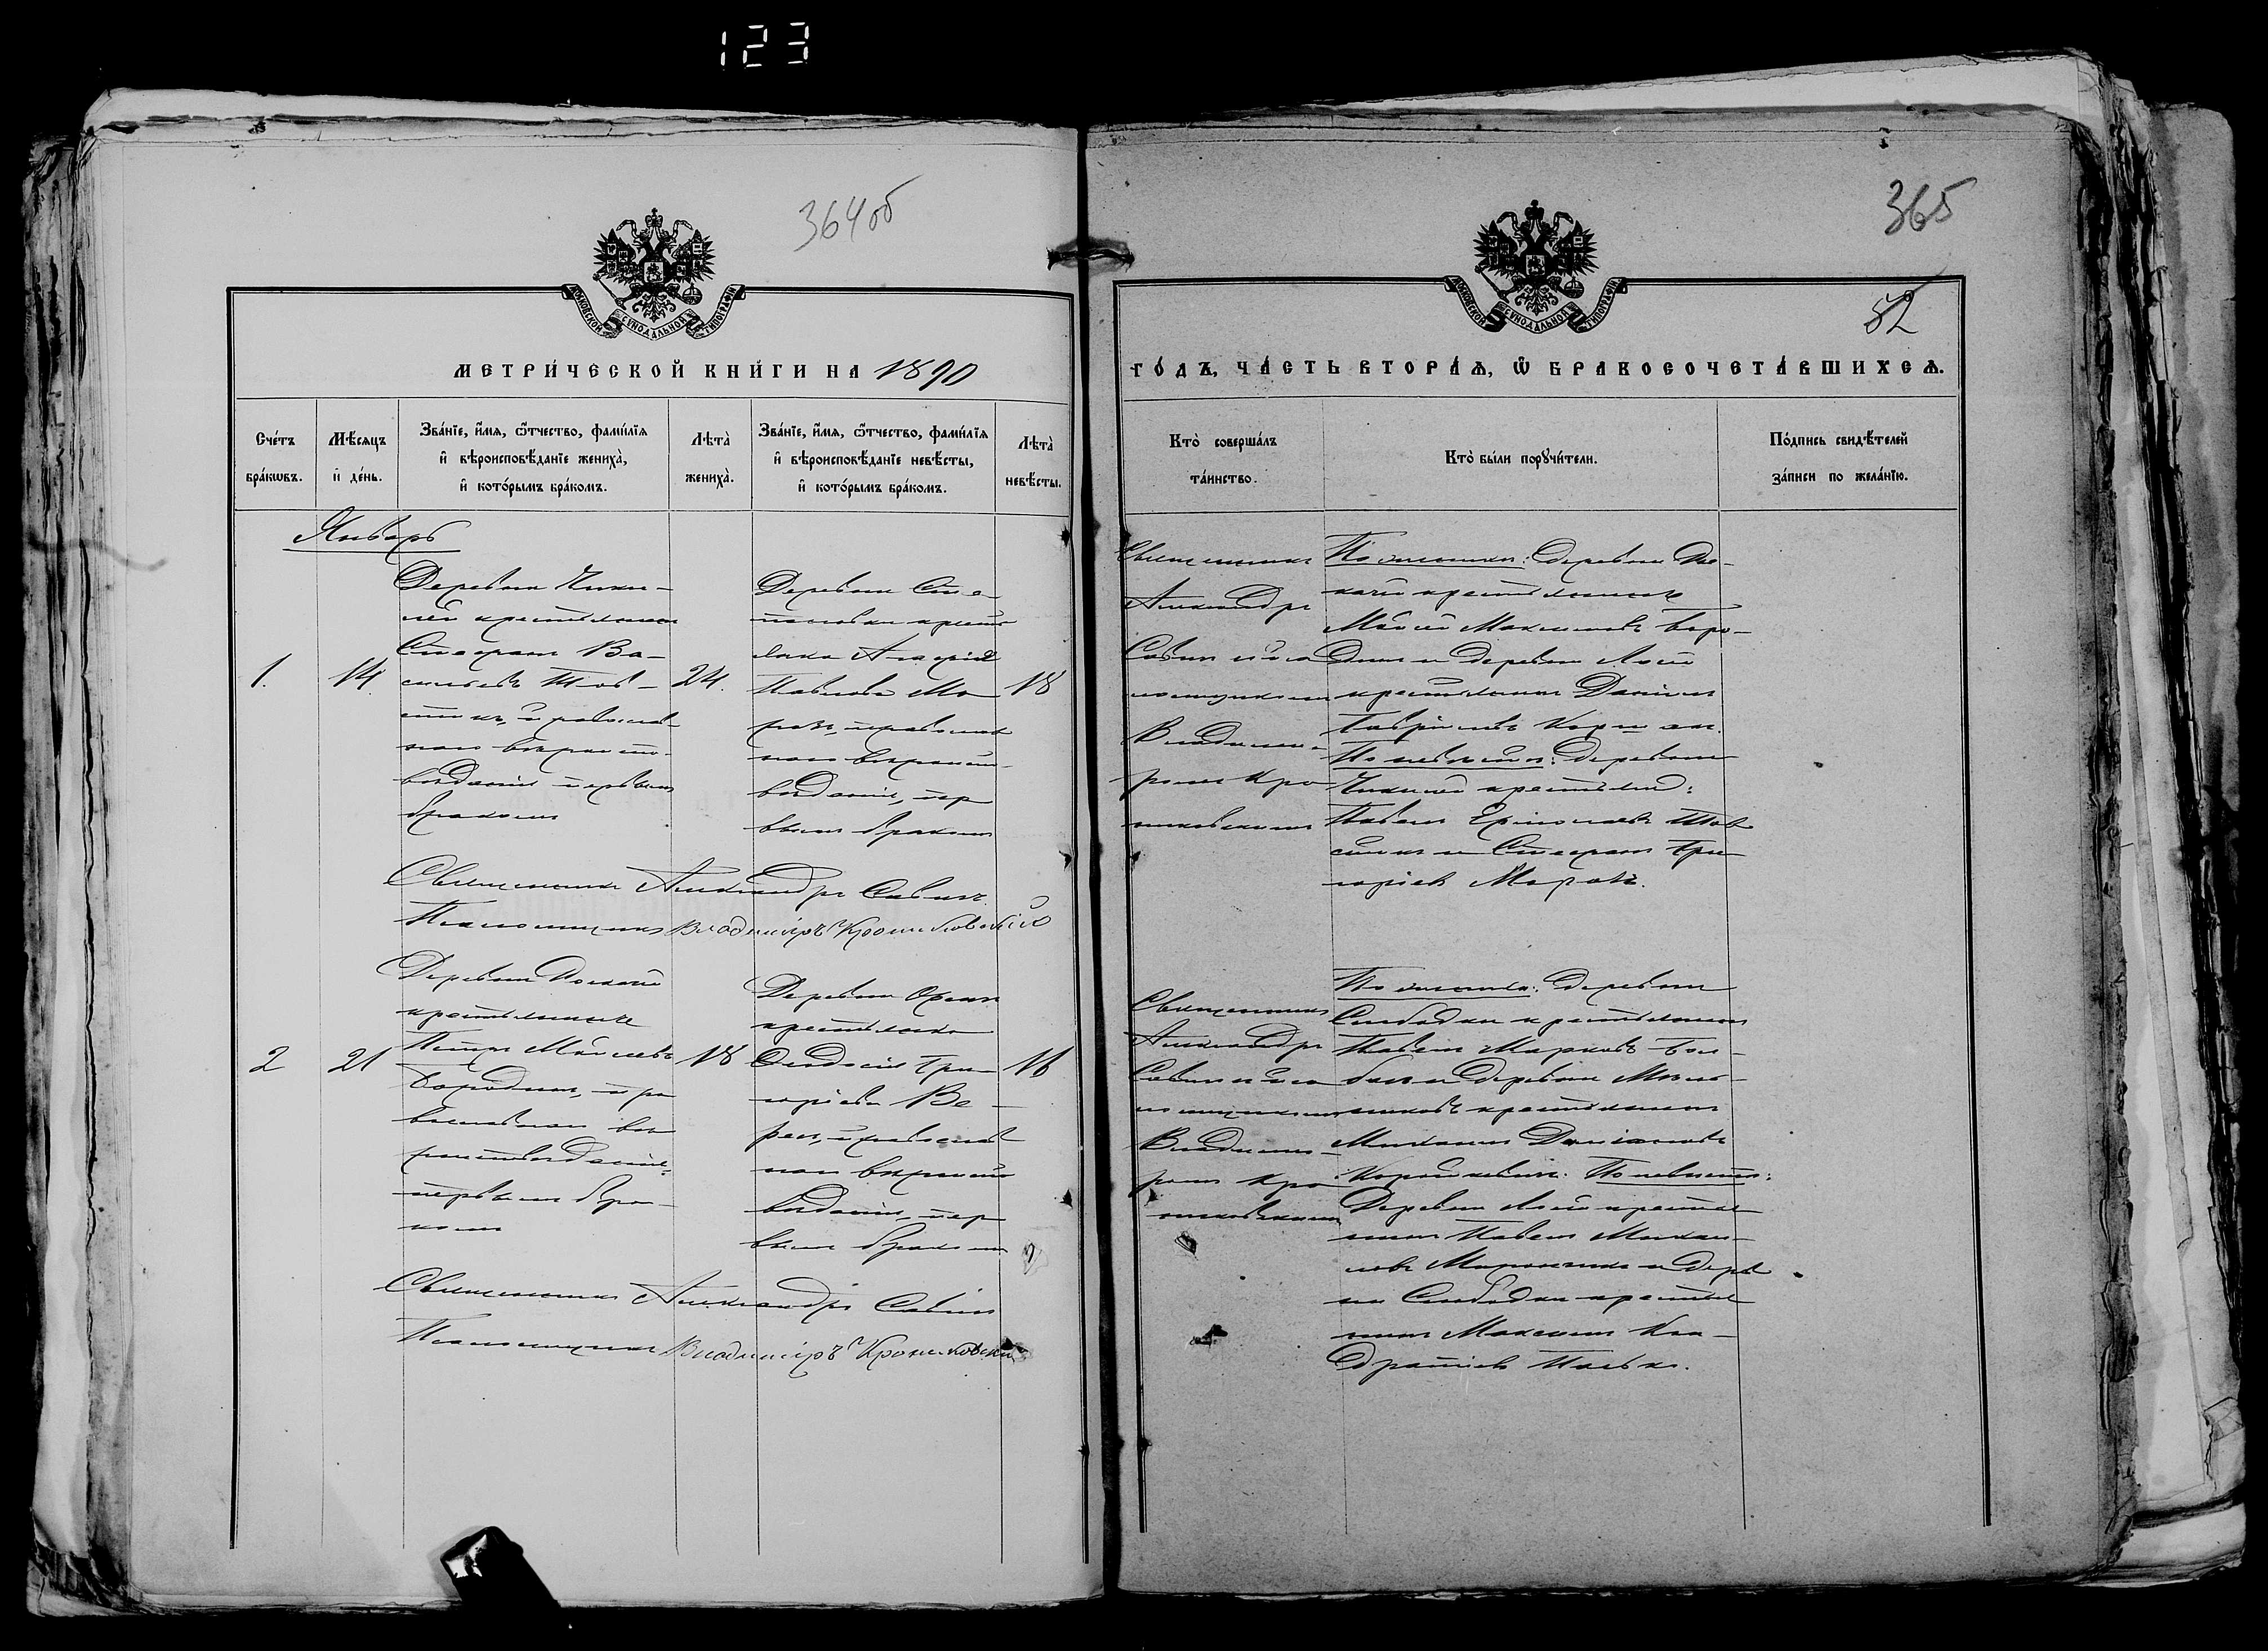 123
364об
365
МОСКОВСКОЙ СѴНОДАЛЬНОЙ ТИПОГРАФІИ
МОСКОВСКОЙ СѴНОДАЛЬНОЙ ТИПОГРАФІИ
82
МЕТРИ́ЧЕСКОЙ КНИ́ГИ НА 1890
ГО́ДЪ, ЧА́СТЬ ВТОРА́Ѧ, Ѽ БРАКОСОЧЕТА́ВШИХСѦ.
Сче́тъ
бра́кѡвъ.
Мѣ́сѧцъ
и҆ де́нь.
Зва́нїе, и҆́мѧ, ѻ҆́тчество, фами́лїѧ
и҆ вѣроисповѣ́данїе жениха̀,
и҆ кото́рымъ бра́комъ.
Лѣта̀
жениха̀.
Зва́нїе, и҆́мѧ, ѻ҆́тчество, фами́лїѧ
и҆ вѣроисповѣ́данїе невѣ́сты,
и҆ кото́рымъ бра́комъ.
Лѣта̀
невѣ́сты.
Кто̀ соверша́лъ
та́инство.
Кто̀ бы́ли порꙋчи́тели.
По́дпись свидѣ́телей
за́писи по жела́нїю.
Январь
1.
14.
Деревни
крестьянинъ
Стефанъ Ва-
сильевъ
православ-
наго вѣроиспо-
вѣданія первымъ
бракомъ
24.
Деревни Сте-
пановки кресть
янка
Павлова Мо
розъ, православ
наго вѣроиспо-
вѣданія, пер
вымъ бракомъ
18
Священникъ
Александръ
Савичъ и пса
ломщикомъ
Владими-
ромъ Кро
никовскимъ
По женихѣ: деревни
крестьянинъ
Моисей Максимовъ Боро-
динъ и деревни
крестьянинъ Даніилъ
Гавріиловъ
По невѣстѣ: деревни
Павелъ Ермолаевъ
и Стефанъ Гри
горіевъ Морозъ.
Священникъ Александръ Савичъ
Псаломщикъ Владиміръ Крониковскій
2
21
Деревни
крестьянинъ
Петръ Моисеевъ
Бородинъ, пра
вославнаго вѣ
роисповѣданія,
первымъ бра-
комъ
18
Деревни
крестьянка
Ѳеодосія Гри-
горіева Ве-
православ
наго вѣроиспо
вѣданія, пер
вымъ бракомъ
16
Священникъ
Александръ
Савичъ и пса
ломщикомъ
Владими-
ромъ Кро
никовскимъ
По женихѣ: деревни
Слободки крестьянинъ
Павелъ Марковъ
и деревни
крестьянинъ
Михаилъ Даміановъ
По невѣстѣ:
Деревни крестья
нинъ Павелъ Михаи-
ловъ и дерев
ни Слободки крестья
нинъ Максимъ Кон-
дратіевъ
Священникъ Александръ Савичъ
Псаломщикъ Владиміръ Крониковскій